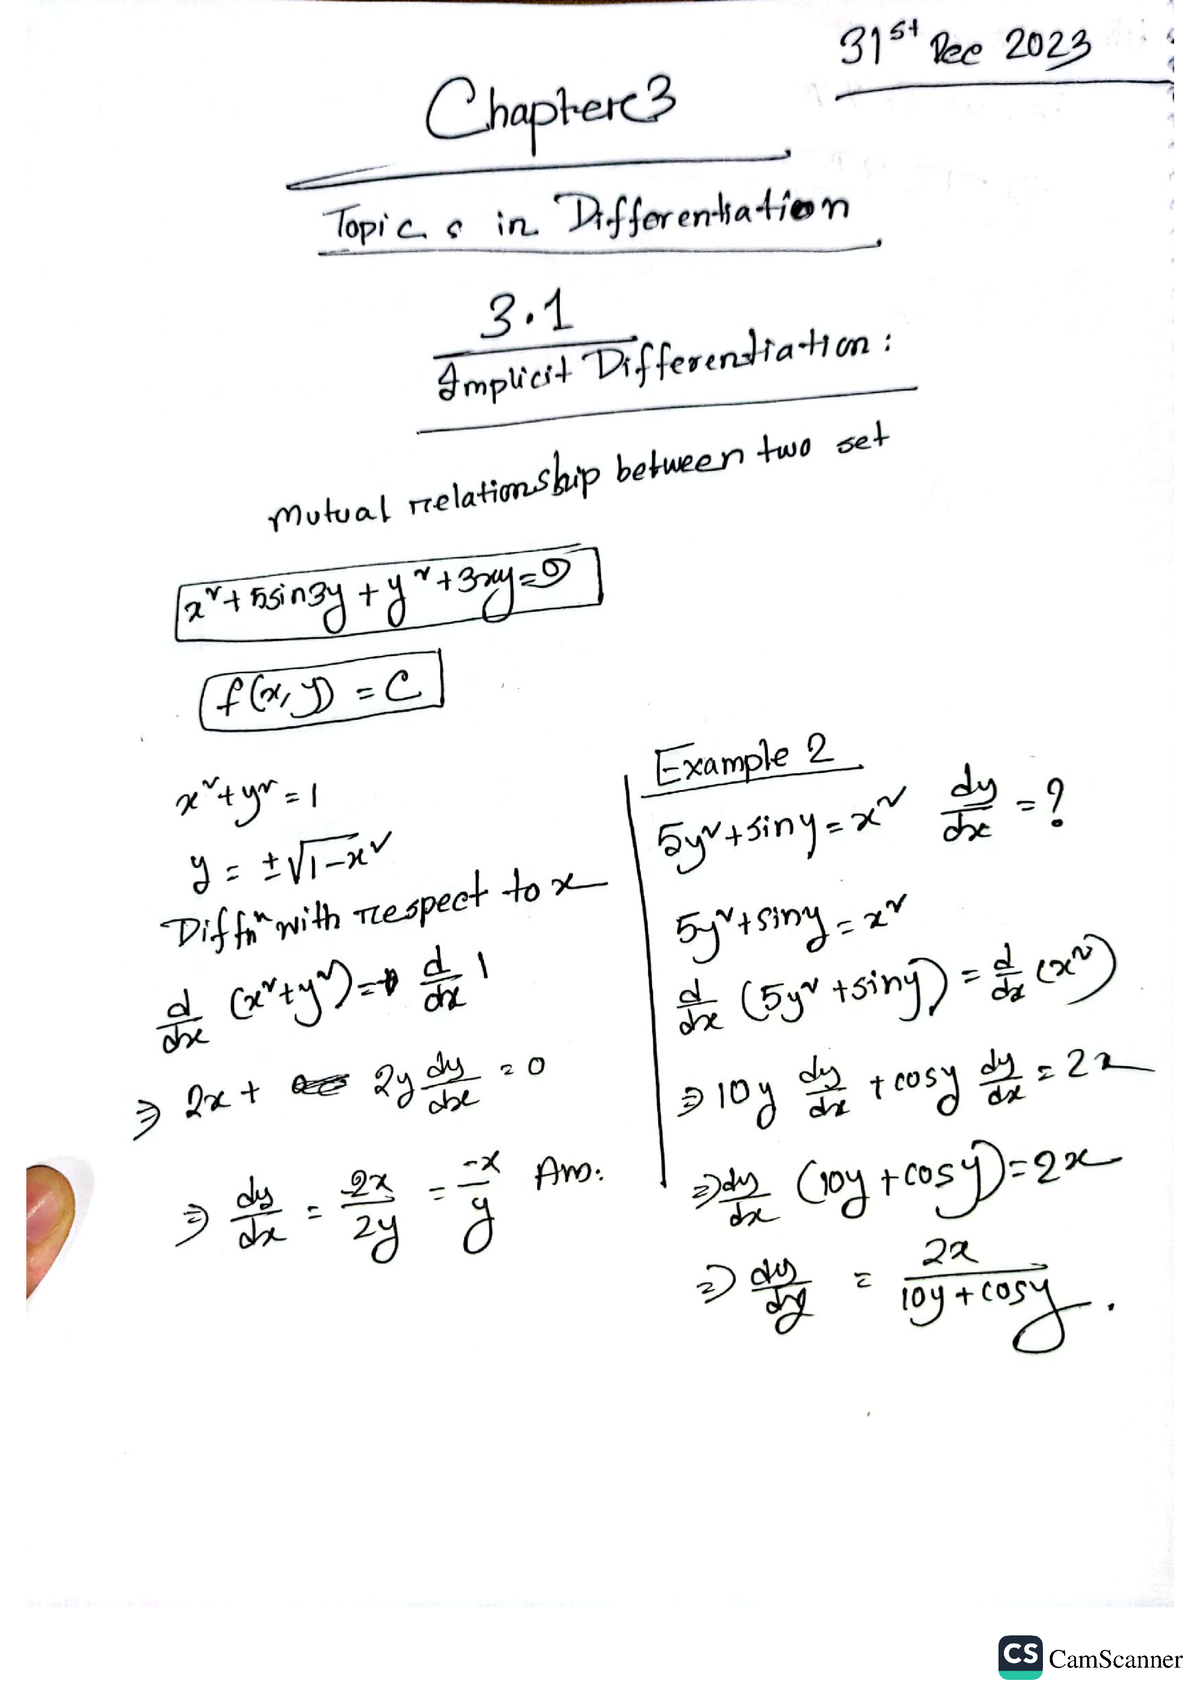 31st Dec 2023
Chapter 3
Topics in Differentiation
3.1
Implicit Differentiation:
Mutual relationship between two set
x² + 5sin3y + y² + 3xy = 9
f(x, y) = C
x² + y² = 1
y = ±√1-x²
Diffⁿ with respect to x
d/dx (x² + y²) = d/dx 1
⇒ 2x + 2y dy/dx = 0
⇒ dy/dx = -2x/2y = -x/y Ans:
Example 2
5y² + siny = x² dy/dx = ?
5y² + siny = x²
d/dx (5y² + siny) = d/dx (x²)
⇒ 10y dy/dx + cosy dy/dx = 2x
⇒ dy/dx (10y + cosy) = 2x
⇒ dy/dy = 2x/10y + cosy .
CS CamScanner